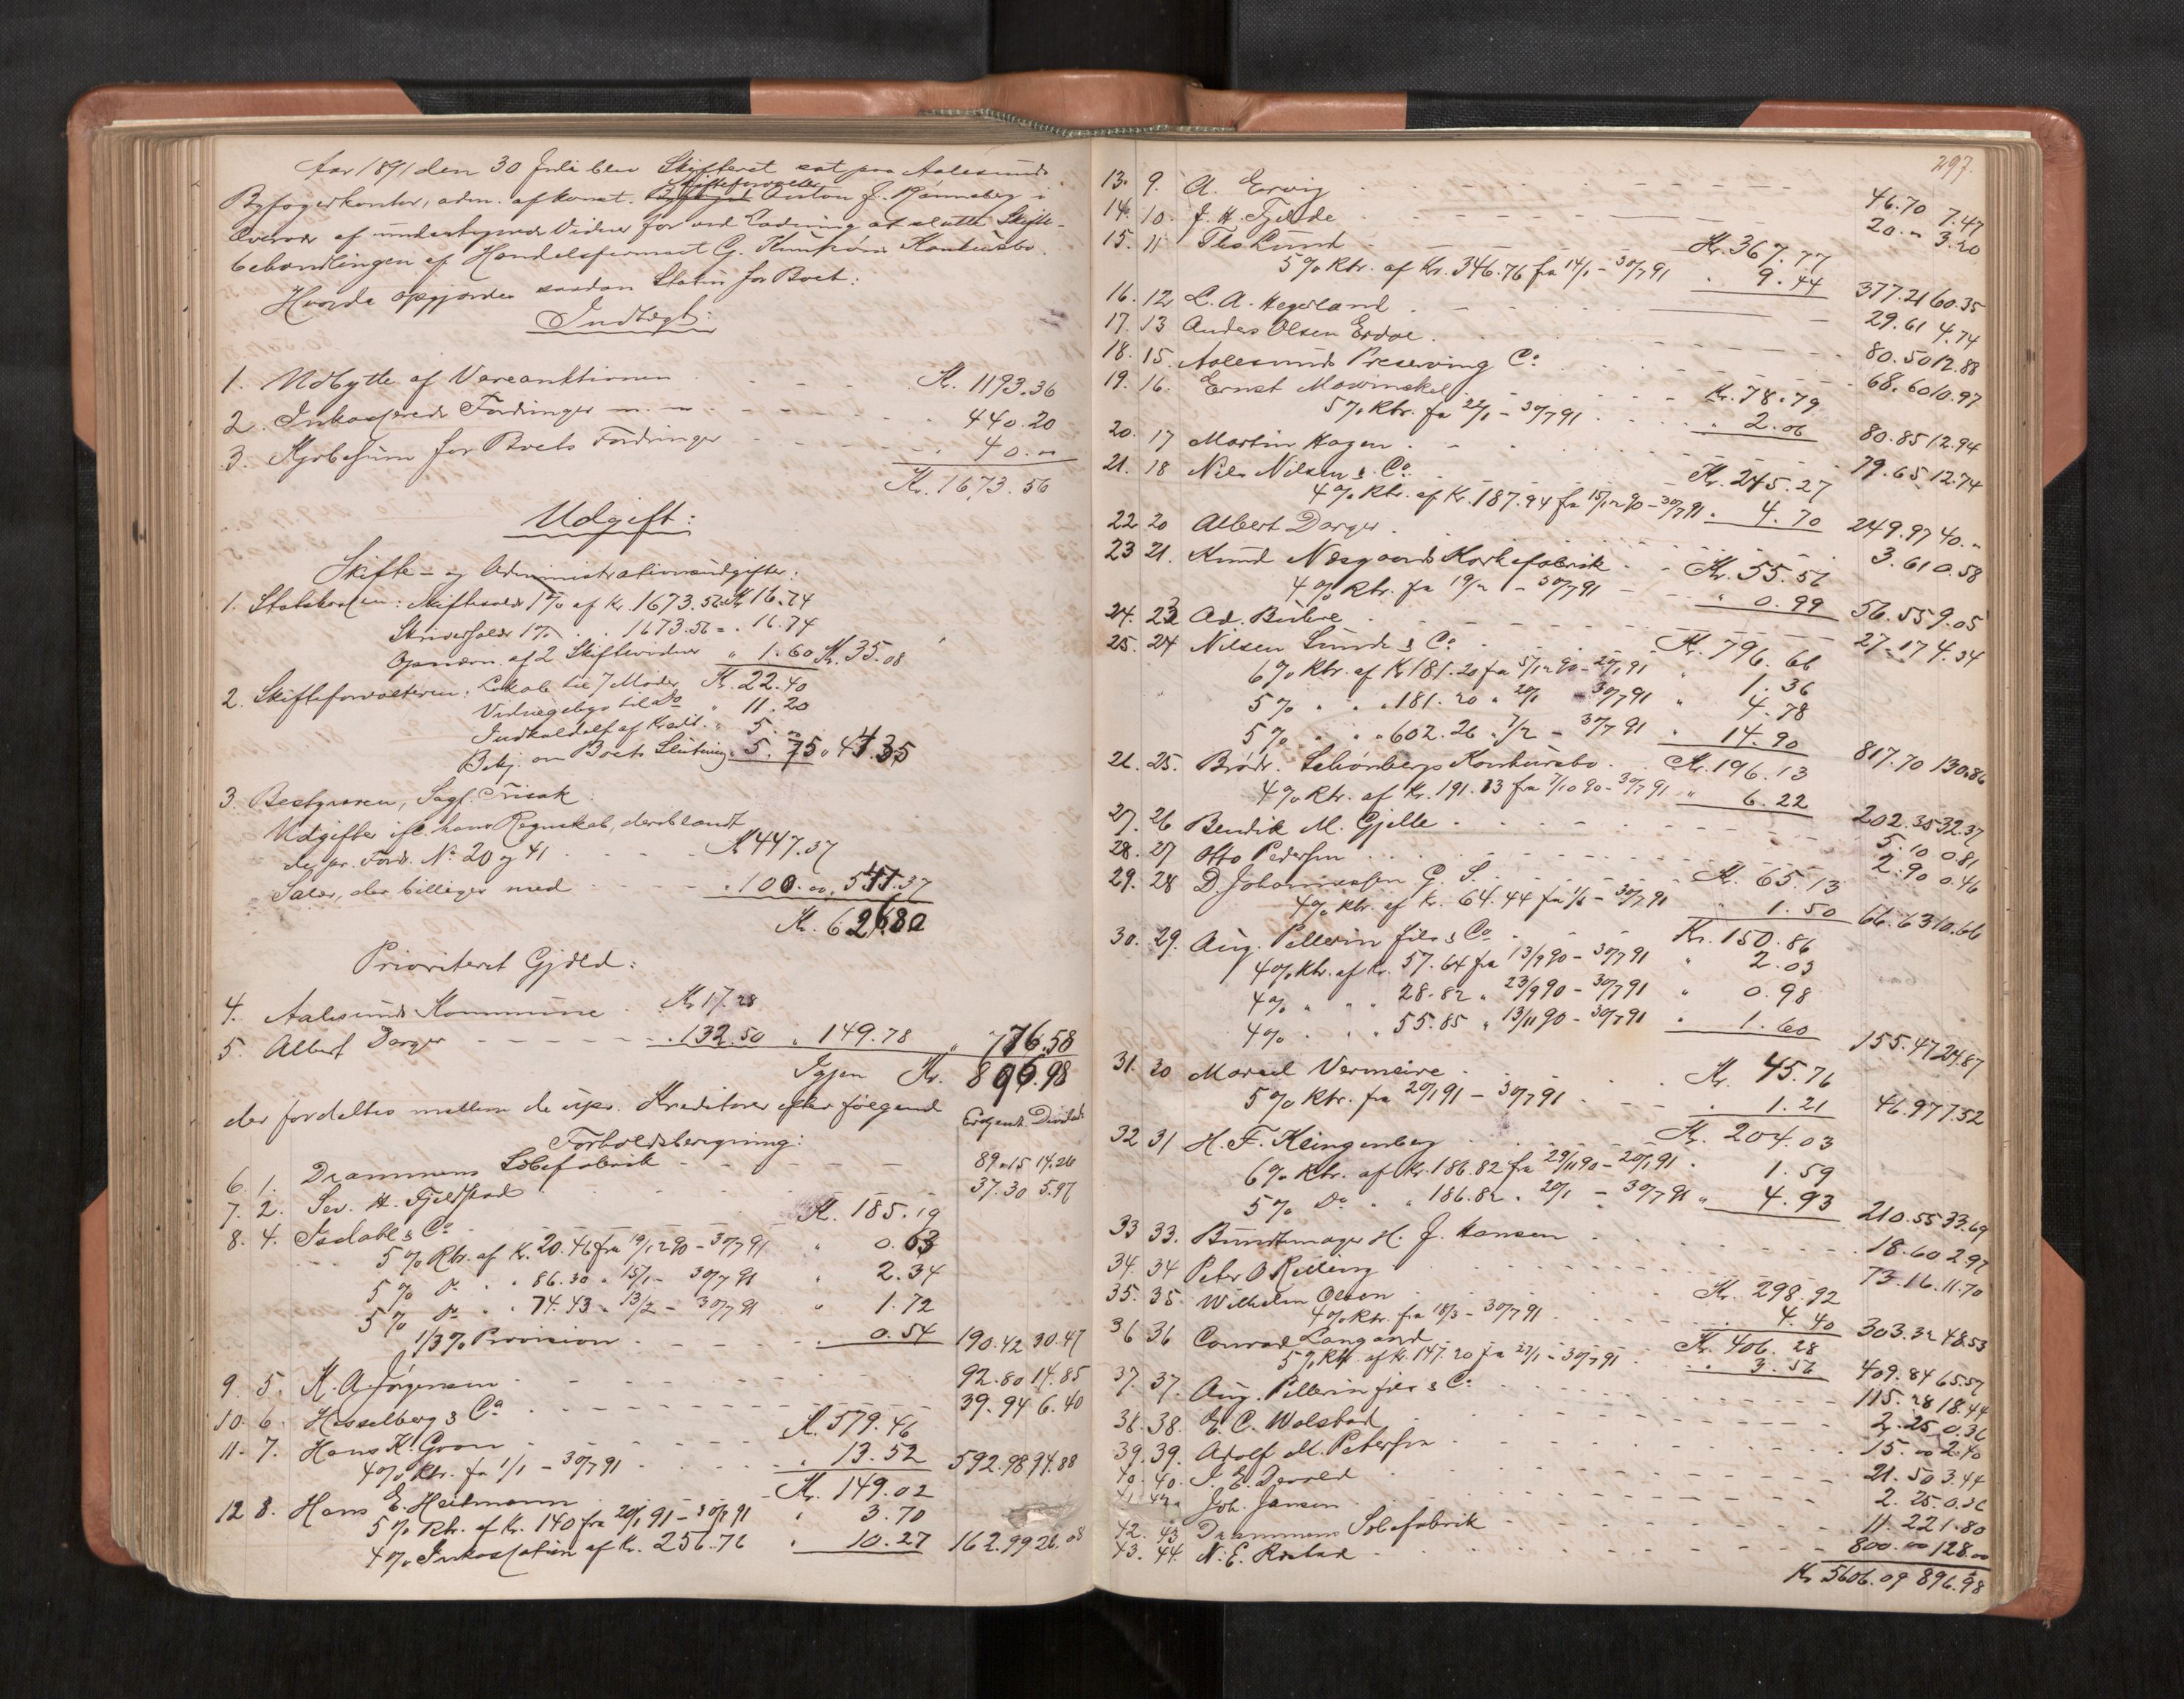 Aar 1891 den 30 Juli blev Skifteret sat paa Aalesunds
Skifteforvalter
Byfogedkontor, adm. af konst. Byfoged Anton J. Rønneberg i
Overvær af undertegnede Vidner for ved Lodning at slutte Skifte-
behandlingen af Handelsfirmaet G. Konkursbo.
Hvorda opgjordes saadan Status for Boet:
Indtægt:
1. Udbytte af Vareauktionen Kr. 1193.36
2. Inkasserede Fordringer 440.20
3. Kjøbesum for Boets Fordringer 40.00
Kr. 1673.56
Udgift:
Skifte- og Administrationsudgifter:
1. Statskassen: Skiftesalær 1% af Kr. 1673.56 Kr. 16.74
Skriversalær 1% " 1673.56 = " 16.74
Opnævn. af 2 Skiftevidner " 1.60 Kr. 35.08
2. Skifteforvalteren: Lokale til 7 Møder Kr. 22.40
Vidnegebyr til Do " 11.20
Indkaldelse af Kredit. " 5.00
Bekj. om Boets Slutning " 5.75 " 44.35
3. Bestyreren, Sagf. Frisak.
Udgifter ifl. hans Regnskab, deriblandt
de pr. Ford. No 20 og 41 Kr. 447.37
Salær, der billiges med . 100.00 " 547.37
Kr. 626.80
Prioriteret Gjæld:
4. Aalesunds Kommune Kr. 17.28
5. Albert Dorger . 132.50 " 149.78 " 776.58
Igjen Kr. 896.98
der fordeltes mellem de upr. Kreditorer efter følgende
Forholdsberegning: Erkjendt Dividende
6. 1. Drammens Sæbefabrik 89.15 14.26
7. 2. Sev. H. Fjeldstad 37.30 5.97
8. 4. Isdahl & Co Kr. 185.19
5% Rtr. af Kr. 20.46 fra 19/12 90 - 30/7 91 " 0.63
5% Do " " 86.30 " 15/1 - 30/7 91 " 2.34
5% Do " " 74.43 " 13/2 - 30/7 91 " 1.72
1/3% Provision . 0.54 190.42 30.47
9. 5. K. A. Jørgensen 92.80 14.85
10. 6. Hesselberg & Co 39.94 6.40
11. 7. Hans K. Gron Kr. 579.46
4% Rtr. fra 1/1 - 30/7 91 . 13.52 592.98 94.88
12 8. Hans E. Heitmann Kr. 149.02
5% Rtr. af Kr. 140 fra 20/1 91 - 30/7 91 " 3.70
4% Inkassation af Kr. 256.76 . 10.27 162.99 26.08
297.
13. 9. A. Ervig 46.70 7.47
14. 10. J. H. Fjelde 20.00 3.20
15. 11 Ths Lund Kr. 367.77
5% Rtr. af Kr. 346.76 fra 14/1 - 30/7 91 . 9.44 377.21 60.35
16. 12 L. A. Hegerland 29.61 4.74
17. 13 Anders Olsen Erdal 80.50 12.88
18. 15. Aalesunds Preserving Co 68.60 10.97
19. 16. Ernst Mowinckel Kr. 78.79
5% Rtr. fra 22/1 - 30/7 91 " 2.06 80.85 12.94
20. 17 Martin Hagen 79.65 12.74
21. 18 Nils Nilsen & Co Kr. 245.27
4% Rtr. af Kr. 187.94 fra 15/12 90 - 30/7 91 . 4.70 249.97 40.00
22 20 Albert Dorger 3.61 0.58
23 21. Knud Næsgaards Korkefabrik Kr. 55.56
4% Rtr. fra 19/2 - 30/7 91 " 0.99 56.55 9.05
24. 23 Ad. Butve 27.17 4.34
25. 24 Nilsen Lund & Co Kr. 796.66
6% Rtr. af Kr. 181.20 fra 5/12 90 - 20/1 91 " 1.36
5% " " 181.20 " 20/1 - 30/7 91 " 4.78
5% " " 602.26 " 7/2 - 30/7 91 . 14.90 817.70 130.86
26. 25. Brødr. Schønbergs Konkursbo Kr. 196.13
4% Rtr. af Kr. 191.13 fra 7/10 90 - 30/7 91 " 6.22 202.35 32.37
27. 26 Bendik M. Gjelle 5.10 0.81
28. 27 Otto Pedersen 2.90 0.46
29. 28 D. Johannessen G. S. Kr. 65.13
4% Rtr. af Kr. 64.44 fra 1/1 - 30/7 91 " 1.50 66.63 10.66
30. 29. Aug. Pellerin fils & Co Kr. 150.86
4% Rtr. af Kr. 57.64 fra 13/9 90 - 30/7 91 " 2.03
4% " " 28.82 " 23/9 90 - 30/7 91 " 0.98
4% " " 55.85 " 13/11 90 - 30/7 91 . 1.60 155.47 24.87
31. 30 Marcel Vermeire Kr. 45.76
5% Rtr. fra 20/1 91 - 30/7 91 . 1.21 46.97 7.52
32 31 H. F. Klingenberg Kr. 204.03
6% Rtr. af Kr. 186.82 fra 29/11 90 - 20/1 91 . 1.59
5% Do " " 186.82 " 20/1 - 30/7 91 " 4.93 210.55 33.69
33 33. Bundtmager H. J. Hansen 18.60 2.97
34. 34 Peter O Relling 73.16 11.70
35. 35. Wilhelm Olsen Kr. 298.92
4% Rtr. fra 18/3 - 30/7 91 . 4.40 303.32 48.53
36 36 Conrad Langaard Kr. 406.28
5% Rtr. af Kr. 147.20 fra 27/1 - 30/7 91 . 3.56 409.84 65.57
37. 37. Aug. Pellerin fils & Co 115.28 18.44
38. 38. E. C. Wolstad 2.25 0.36
39. 39. Adolf M. Petersen 15.00 2.40
40. 40. J. E. Devold 21.50 3.44
41. 42a Joh. Jansen 2.25 0.36
42. 43 Drammens Sæbefabrik 11.22 1.80
43. 44. N. E. Rostad 800.00 128.00
Kr. 5606.09 896.98